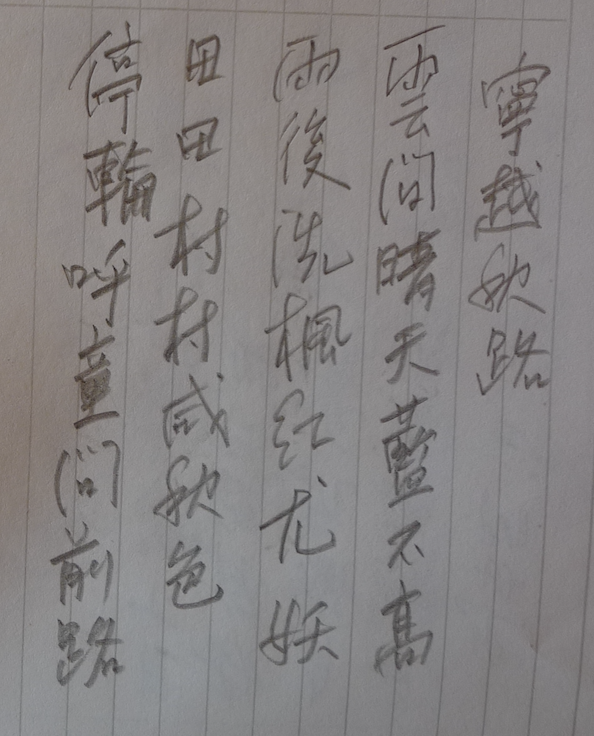 寧越秋路
雲间晴天藍不高
雨後洗楓红尤妖
田田村村咸秋色
停輪呼童问前路